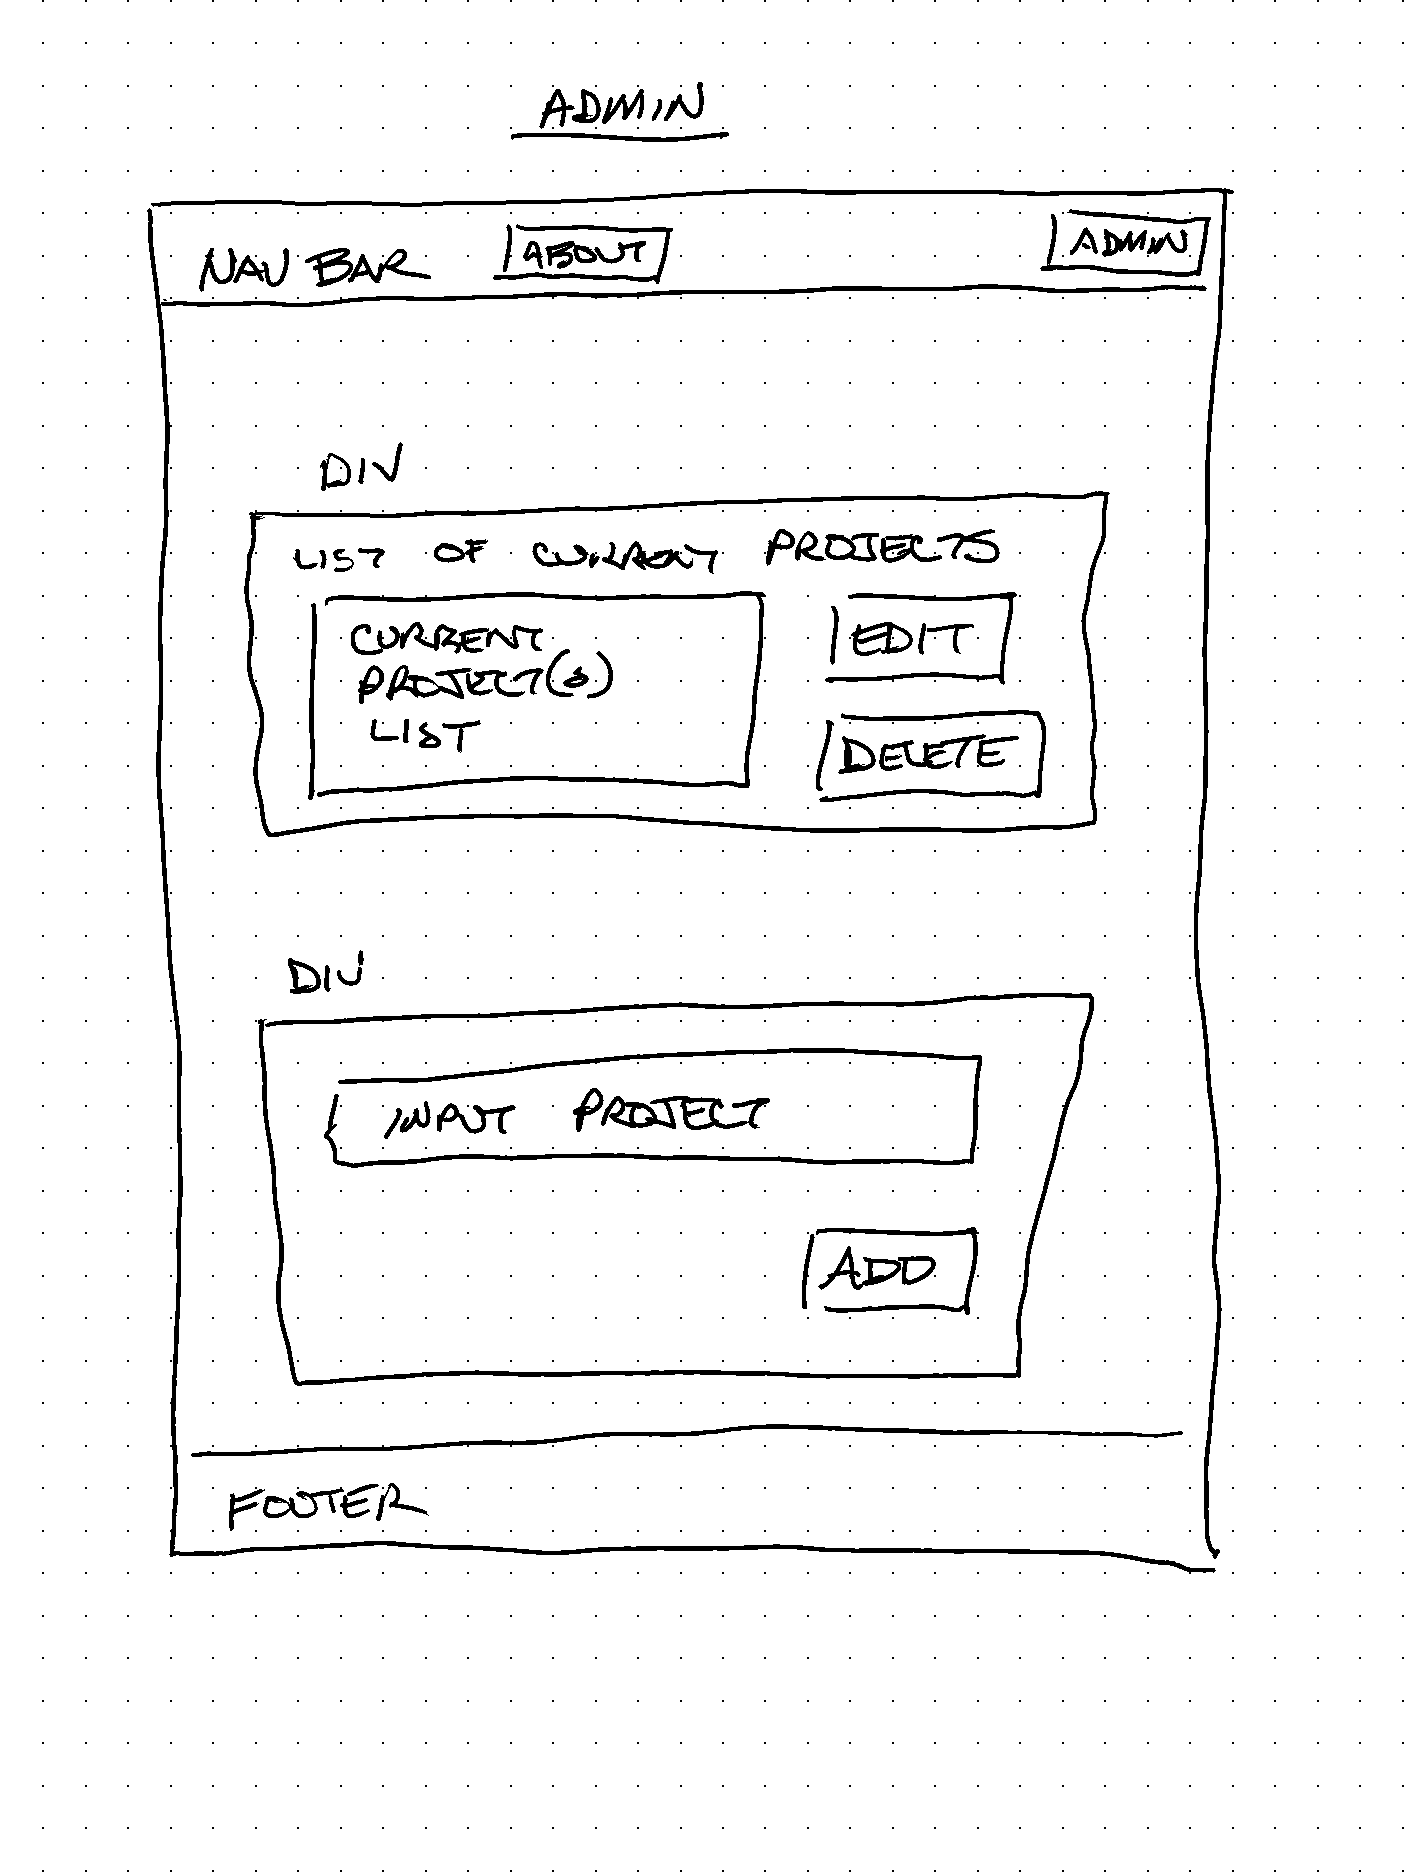 ADMIN
NAV BAR ABOUT ADMIN
DIV
LIST OF CURRENT PROJECTS
CURRENT
PROJECT(S)
LIST
EDIT
DELETE
DIV
INPUT PROJECT
ADD
FOOTER